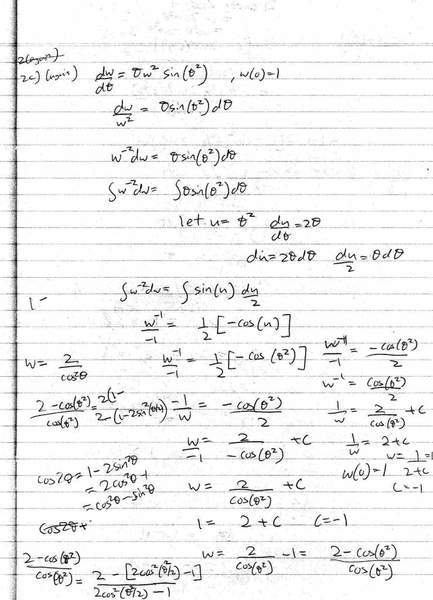 2c) (again) dw/dθ = θw² sin(θ²) , w(0)=1
dw/w² = θsin(θ²)dθ
w⁻²dw = θsin(θ²)dθ
∫w⁻²dw = ∫θsin(θ²)dθ
let u = θ² du/dθ = 2θ
du = 2θdθ du/2 = θdθ
∫w⁻²dw = ∫ sin(u) du/2
1-
w⁻¹/-1 = 1/2 [-cos(u)]
w = 2/cos²θ
w⁻¹/-1 = 1/2 [-cos(θ²)]
w⁻¹/-1 = -cos(θ²)/2
w⁻¹ = cos(θ²)/2
2-cos(θ²)/cos(θ²) = 2(1-
2-(1-2sin²(θ/2))
-1/w = -cos(θ²)/2
1/w = 2/cos(θ²) + c
w/-1 = 2/-cos(θ²) + c
1/w = 2+c
w = 1/2+c = 1
w(0)=1
c=-1
cos2θ = 1-2sin²θ
= 2cos²θ-1
= cos²θ-sin²θ
w = 2/cos(θ²) + c
cos2θ+
1 = 2+c c=-1
w = 2/cos(θ²) -1 = 2-cos(θ²)/cos(θ²)
2-cos(θ²)/cos(θ²) = 2-[2cos²(θ²/2)-1]/2cos²(θ²/2)-1